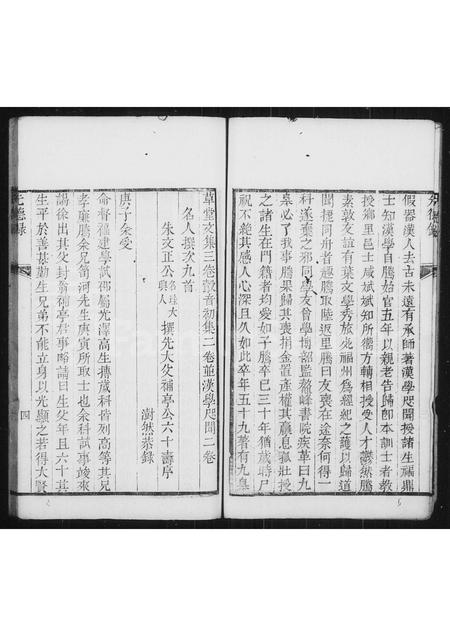 假器漢人去古未遠有承師著漢學咫聞授諸生福鼎
士知漢學自騰始官五年以親老告歸即本訓士者教
授鄉里邑士咸斌斌知所嚮方轉相授受人才鬱然騰
素敦友誼有葉文學秀旅處福州爲經紀之護以歸道
聞捷同舟者趣騰取陸返里騰曰友喪在途奈何得一
科遂棄之邪同友曾學博部監鰲峰書院疾革曰九
皋必了我事騰果歸其喪捐金置產權其贏息孤壯授
之諸生在門籍者均愛如子騰卒已三十年猶歲時尸
祝不絕其感人心深且久如此卒年五十九著有九皋
草堂文集三卷鷇音初集二卷並漢學咫聞二卷
名人撰次九首
朱文正公名珪大興人撰先大父補亭公六十壽序
澍然恭錄
庚子余受
命督福建學試邵屬光澤高生摶歲科皆列高等其兄
孝廉騰余兄笥河先生庚寅所取士也余科試事竣來
謁徐出其父封翁補亭君事略請曰生父年且六十其
生平於善甚勤生兄弟不能立身以光顯之若得大賢
先德錄
四